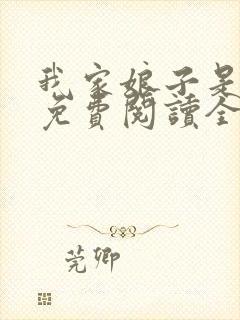 我家娘子是
免費閱讀全
莞卿